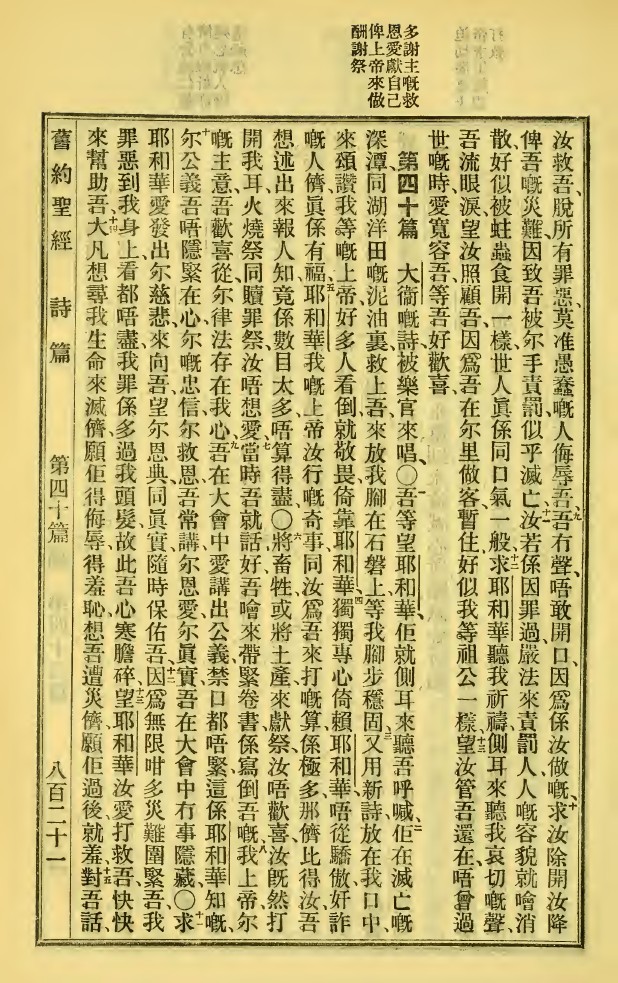 多謝主嘅救
恩愛獻自己
俾上帝來做
酬謝祭
汝救吾脫所有罪惡、莫准愚蠢嘅人侮辱吾、九吾冇聲唔敢開口、因爲係汝做嘅、十求汝除開汝降
俾吾嘅災難、因致吾被尔手責罰似乎滅亡、十一汝若係因罪過嚴法來責罰人、人嘅容貌就噲消
散、好似被蛀蟲食開一樣、世人眞係同口氣一般、十二求耶和華聽我祈禱、側耳來聽我哀切嘅聲、
吾流眼淚望汝照顧吾、因爲吾在尔里做客、暫住好似我等祖公一樣、十三望汝管吾還在、唔曾過
世嘅時、愛寬容吾等吾好歡喜、
第四十篇 大衛嘅詩被樂官來唱、〇一吾等望耶和華、佢就側耳來聽吾呼喊、二佢在滅亡嘅
深潭、同湖洋田嘅泥油裏救上吾來、放我腳在石磐上、等我腳步穩固、三又用新詩放在我口中、
來頌讚我等嘅上帝、好多人看倒就敬畏倚靠耶和華、四獨獨專心倚賴耶和華、唔從驕傲奸詐
嘅人、儕眞係有福、五耶和華我嘅上帝、汝行嘅奇事、同汝爲吾來打嘅算係極多、那儕比得汝、吾
想述出來報人知、竟係數目太多唔算得盡、〇六將畜牲或將土產來獻祭、汝唔歡喜、汝旣然打
開我耳、火燒祭同贖罪祭、汝唔想愛、七當時吾就話、好、吾噲來、帶緊卷書係寫倒吾嘅、八我上帝、尔
嘅主意、吾歡喜從、尔律法存在我心、九吾在大會中愛講出公義、禁口都唔緊、這係耶和華知嘅、
十尔公義吾唔隱緊在心、尔嘅忠信尔救恩、吾常講、尔恩愛尔眞實、吾在大會中冇事隱藏、〇十一求
耶和華愛發出尔慈悲、來向吾、望尔恩典同眞實、隨時保佑吾、十二因爲無限咁多災難圍緊吾、我
罪惡到我身上、看都唔盡、我罪係多過我頭髮、故此吾心寒膽碎、十三望耶和華汝愛打救吾、快快
來幫助吾、十四大凡想尋我生命來滅儕、願佢得侮辱、得羞恥、想吾遭災儕、願佢過後就羞、十五對吾話、
舊約聖經 詩篇 第四十篇 八百二十一